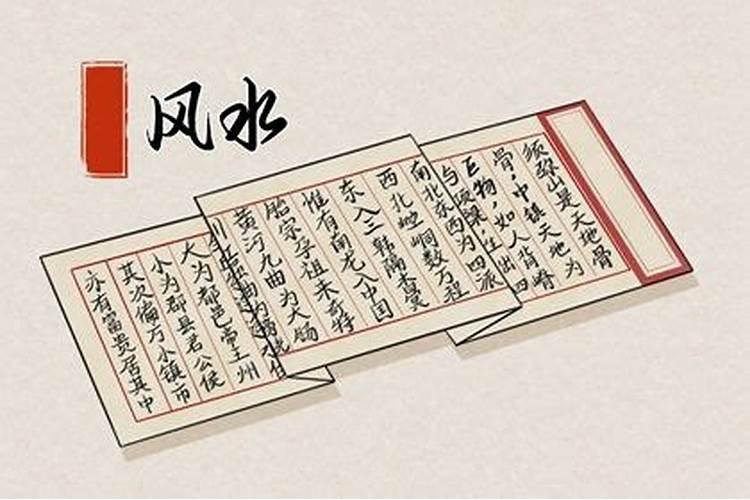 风水
须弥山是天地骨
骨,中镇天地为
巨物,如人背脊
与项梁,生出四
南北东西为四派
西北崆峒数万程
东入三韩隔杳冥
惟有南龙入中国
胎宗孕祖来奇特
黄河九曲为大肠
大为都邑帝王州
小为郡县君公侯
其次偏方小镇市
亦有富贵居其中